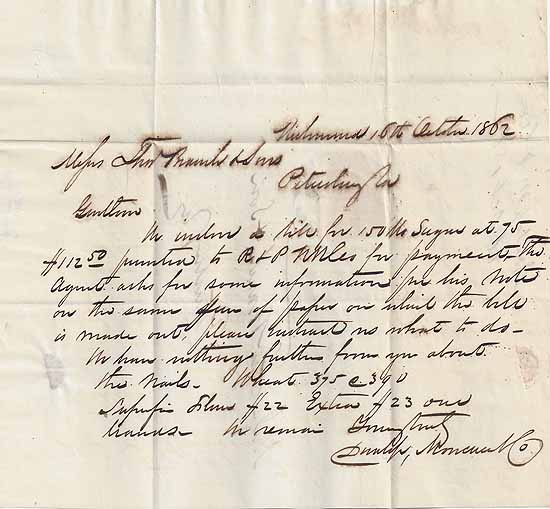 Richmond 16th October 1862
Messrs Thos Branch & Sons
Petersburg Va
Gentlemen
We enclose a bill for 150 lbs Sugar at 75
$112.50 presented to R & P RR Co for payment. The
Agent asks for some information per his note
on the same piece of paper on which the bill
is made out, please instruct us what to do -
We have nothing further from you about
the Nails - Wheat 375 @ 390
Superfine Flour $22 Extra $23 our
brands - We remain Yours truly
Dunlop, Moncure & Co